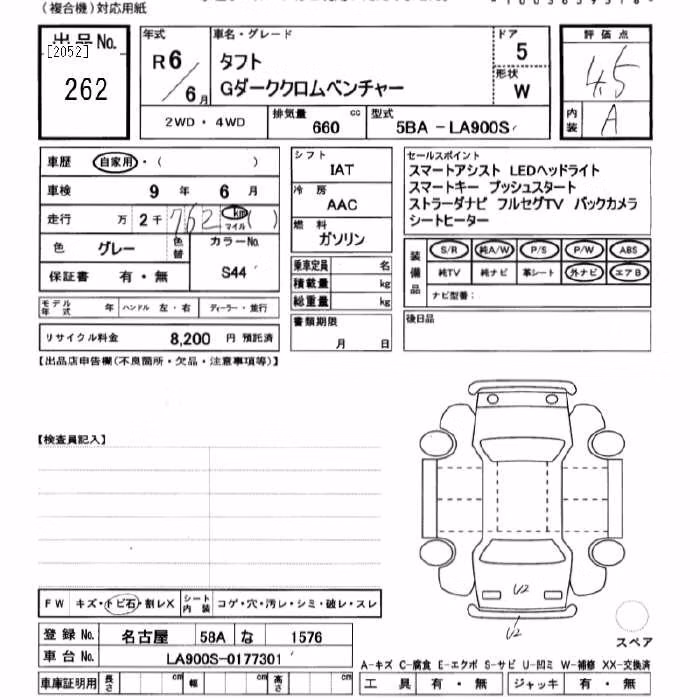 (複合機)対応用紙
出品No.
[2052]
262
年式
R6/6月
車名・グレード
タフト
Gダーククロムベンチャー
ドア
5
形状
W
評価点
4.5
内装
A
2WD・4WD
排気量 660 cc
型式 5BA -LA900S
車歴 自家用・( )
車検 9 年 6 月
走行 万 2千 762 km マイル ( )
色 グレー 色替
カラーNo.
S44
保証書 有・無
モデル年式 年 ハンドル 左・右 ディーラー・並行
リサイクル料金 8,200 円 預託済
シフト
IAT
冷房
AAC
燃料
ガソリン
乗車定員 名
積載量 kg
総重量 kg
書類期限
月 日
セールスポイント
スマートアシスト LEDヘッドライト
スマートキー プッシュスタート
ストラーダナビ フルセグTV バックカメラ
シートヒーター
装備品
S/R 純A/W P/S P/W ABS
純TV 純ナビ 革シート 外ナビ エアB
ナビ型番:
後日品
【出品店申告欄(不良箇所・欠品・注意事項等)】
【検査員記入】
U2
U2
スペア
FW キズ・トビ石・割レX シート内装 コゲ・穴・汚レ・シミ・破レ・スレ
登録 No. 名古屋 58A な 1576
車台 No. LA900S-0177301
車庫証明用 長さ cm 幅 cm 高さ cm
A-キズ C-腐食 E-エクボ S-サビ U-凹ミ W-補修 XX-交換済
工具 有・無 ジャッキ 有・無